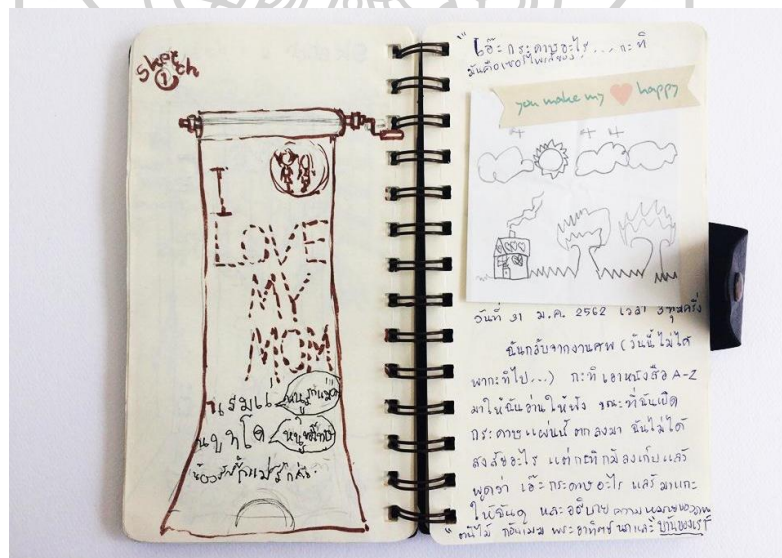 Sketch
1
I
LOVE
MY
MOM
"เอ๊ะ กระดาษอะไร... กะทิ
you make my happy
วันที่ 31 ม.ค. 2562 เวลา 3 ทุ่มครึ่ง
ฉันกลับจากงานศพ (วันนี้ไม่ได้
พากะทิไป...) กะทิเอาหนังสือ A-Z
มาให้ฉันอ่านให้ฟัง ขณะที่ฉันเปิด
กระดาษแผ่นนี้ตกลงมา ฉันไม่ได้
สงสัยอะไร แต่กะทิก้มลงเก็บแล้ว
พูดว่า เอ๊ะ กระดาษอะไร แล้ว
ให้ฉันดู และอธิบายความหมายของภาพ
"ต้นไม้ ก้อนเมฆ พระอาทิตย์ นก และบ้านของเรา"